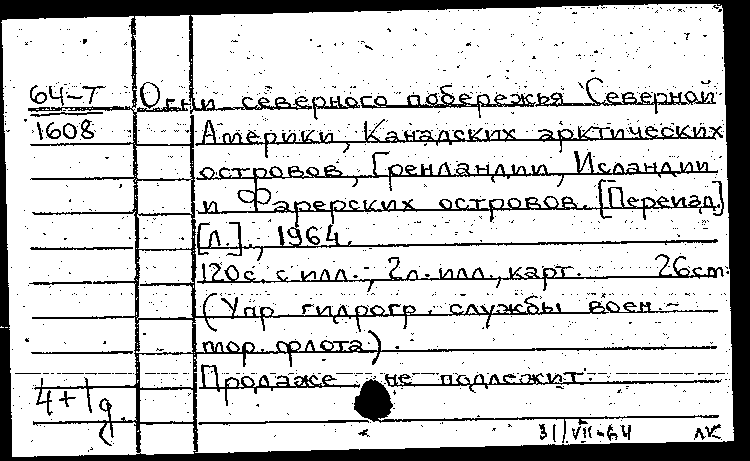 64-Т Огни северного побережья Северной
1608 Америки, Канадских арктических
островов, Гренландии, Исландии
и Фарерских островов. [Переизд.]
[Л.], 1964.
120с. с илл.; 2л. илл., карт. 26см.
(Упр гидрогр. службы воен.-
мор. флота).
Продаже не подлежит.
4+1д
31/VII-64 ЛК